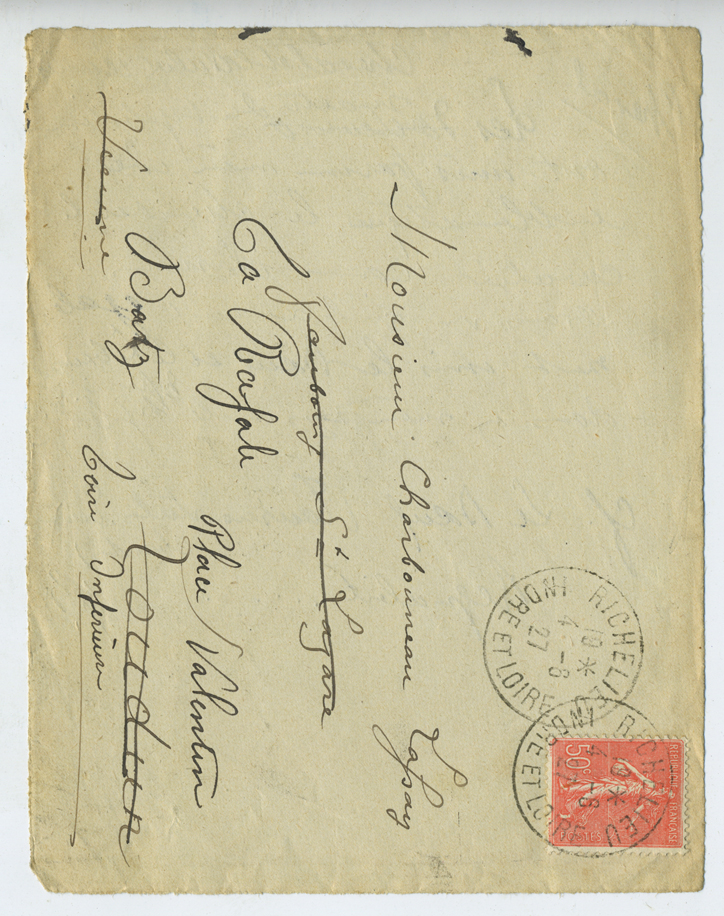 Monsieur Charbonneau Lassay
Faubourg St Lazare
La Rafale
Place Valentin
Loudun
Batz
Loire Inférieure
Vienne
RICHELIEU
19 *
4 - 8
27
INDRE ET LOIRE
RICHELIEU
19 *
4 - 8
27
INDRE ET LOIRE
REPUBLIQUE FRANÇAISE
50c
POSTES